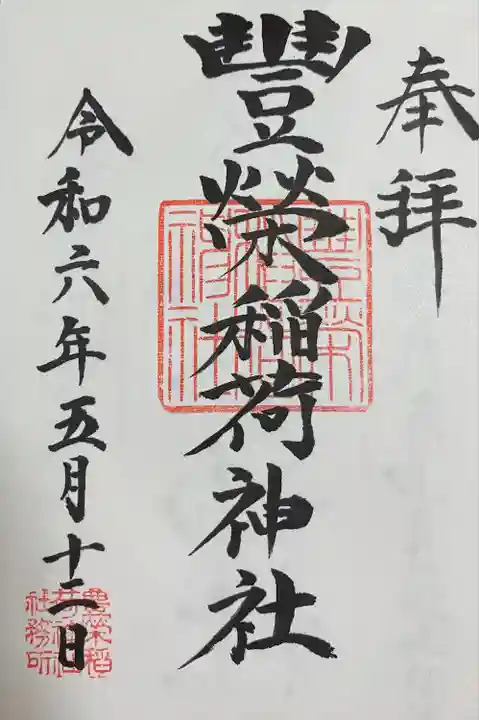 奉拝
豐榮稲荷神社
令和六年五月十二日
豊栄稲
荷神社
社務所